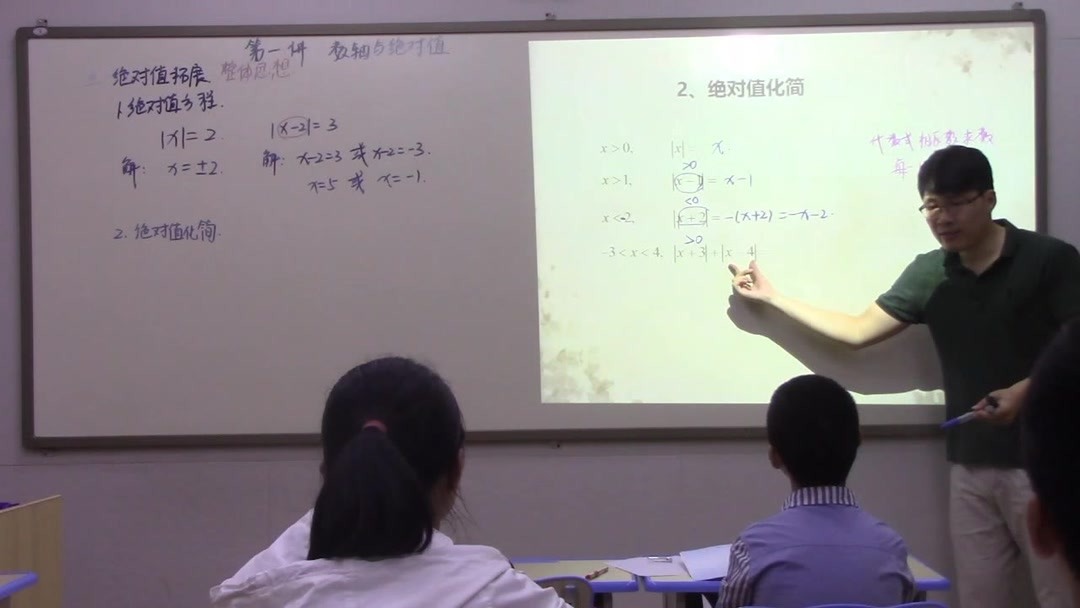 第一讲 数轴与绝对值
绝对值拓展 整体思想
1.绝对值方程.
|x|=2
|x-2|=3
解: x=±2.
解: x-2=3 或 x-2=-3.
x=5 或 x=-1.
2.绝对值化简.
2、绝对值化简
x>0, |x|= x.
>0
x>1, |x-1|= x-1
<0
x<-2, |x+2|=-(x+2)=-x-2.
>0
-3<x<4, |x+3|+|x-4|
代数式